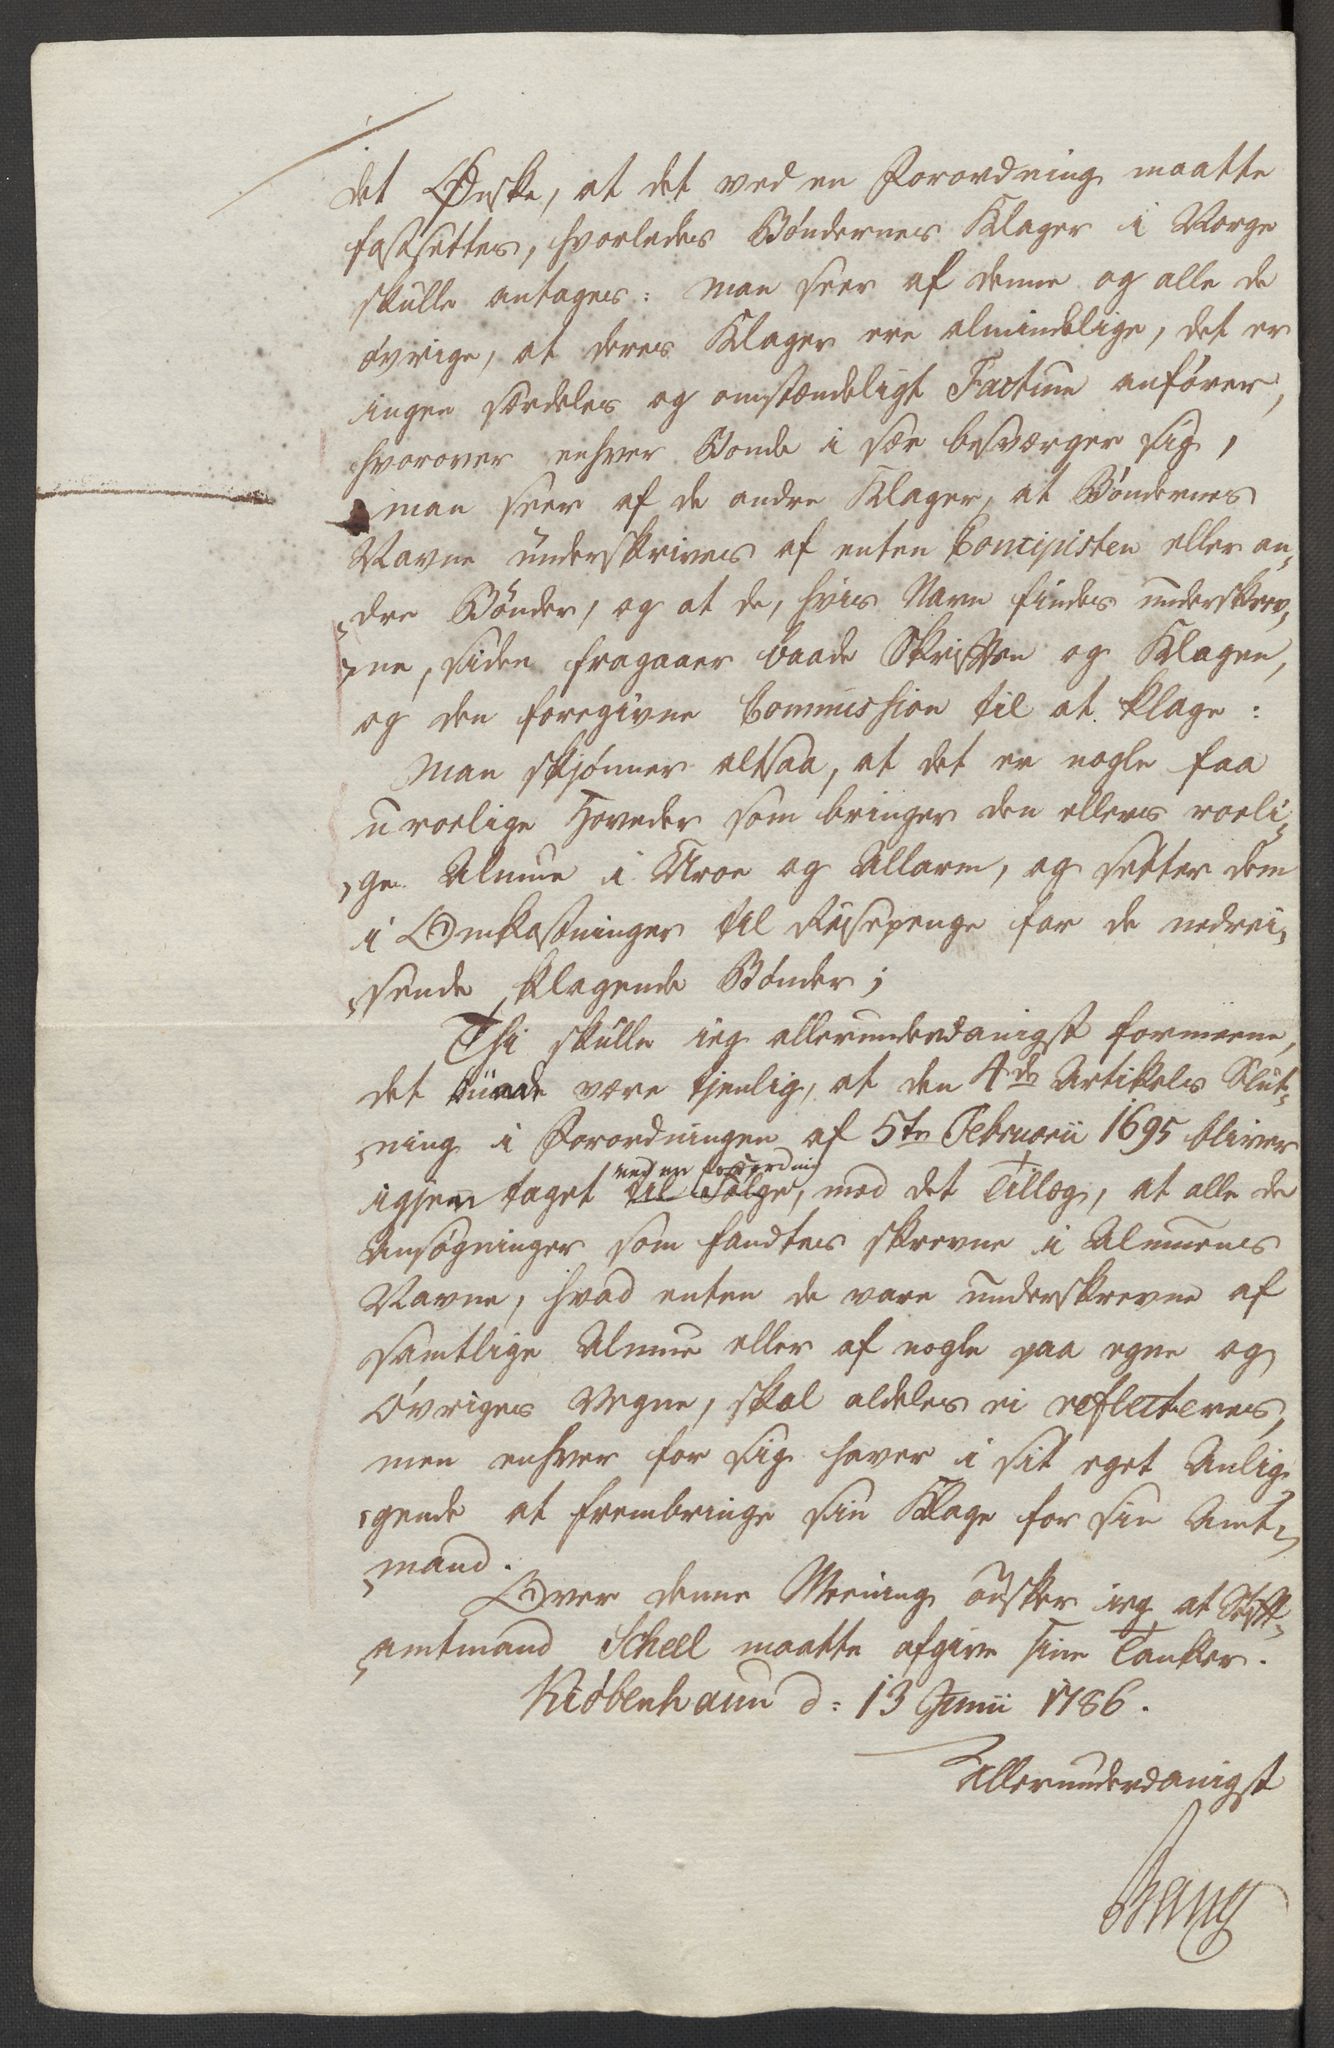 det Ønske, at det ved en Forordning maatte
fastsættes, hvorledes Bøndernes Klager i Norge
skulle antages: man seer af denne og alle de
øvrige, at deres Klager ere almindelige, det er
ingen særdeles og omstændeligt Factum anfører,
hvorover enhver Bonde i sær besværger sig,
man seer af de andre Klager, at Bøndernes
Navne underskrives af enten Concipisten eller an-
dre Bønder, og at de, hvis Navn findes underskrev-
ne, siden fragaaer baade Skriften og Klagen,
og den foregivne Commission til at klage:
Man skjønner altsaa, at det er nogle faa
uroelige Hoveder som bringer den ellers roeli-
ge Almue i Uroe og Allarm, og setter dem
i Omkostninger til Reisepenge for de nedrei-
sende klagende Bønder;
Thi skulle ieg allerunderdanigst formeene,
det være tjenlig, at den 4de Artikels Slut-
ning i Forordningen af 5te Februarii 1695 bliver
ved en Forordning
igjen taget til Følge, med det Tillæg, at alle de
Ansøgninger som fandtes skrevne i Almuens
Navne, hvad enten de vare underskrevne af
samtlige Almue eller af nogle paa egne og
Øvriges Vegne, skal aldeles ei reflecteres,
men enhver for sig haver i sit eget Anlig-
gende at frembringe sin Klage for sin Amt-
mand.
Over denne Meening ønsker ieg at Stift-
amtmand Scheel maatte afgive sine Tanker.
Kiøbenhaun d: 13 Junii 1786.
Allerunderdanigst
Bang